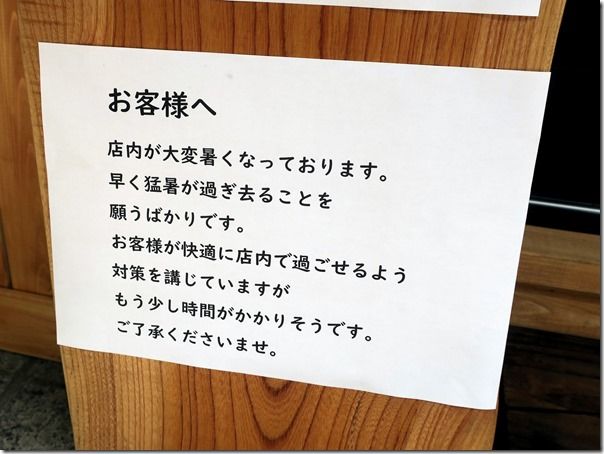 お客様へ
店内が大変暑くなっております。
早く猛暑が過ぎ去ることを
願うばかりです。
お客様が快適に店内で過ごせるよう
対策を講じていますが
もう少し時間がかかりそうです。
ご了承くださいませ。